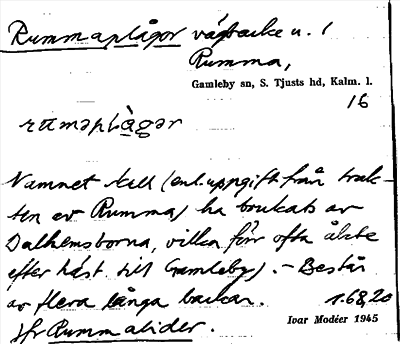 Rummaplågor vägbacke n. l
Rumma,
Gamleby sn, S. Tjusts hd, Kalm. l.
16
Namnet skall (enl. uppgift från trak-
ten av Rumma) ha brukats av
Dalhemsborna, vilka förr ofta åkte
efter häst till Gamleby). – Består
av flera långa backar. 1.68,20
Jfr Rummalider. Ivar Modéer 1945